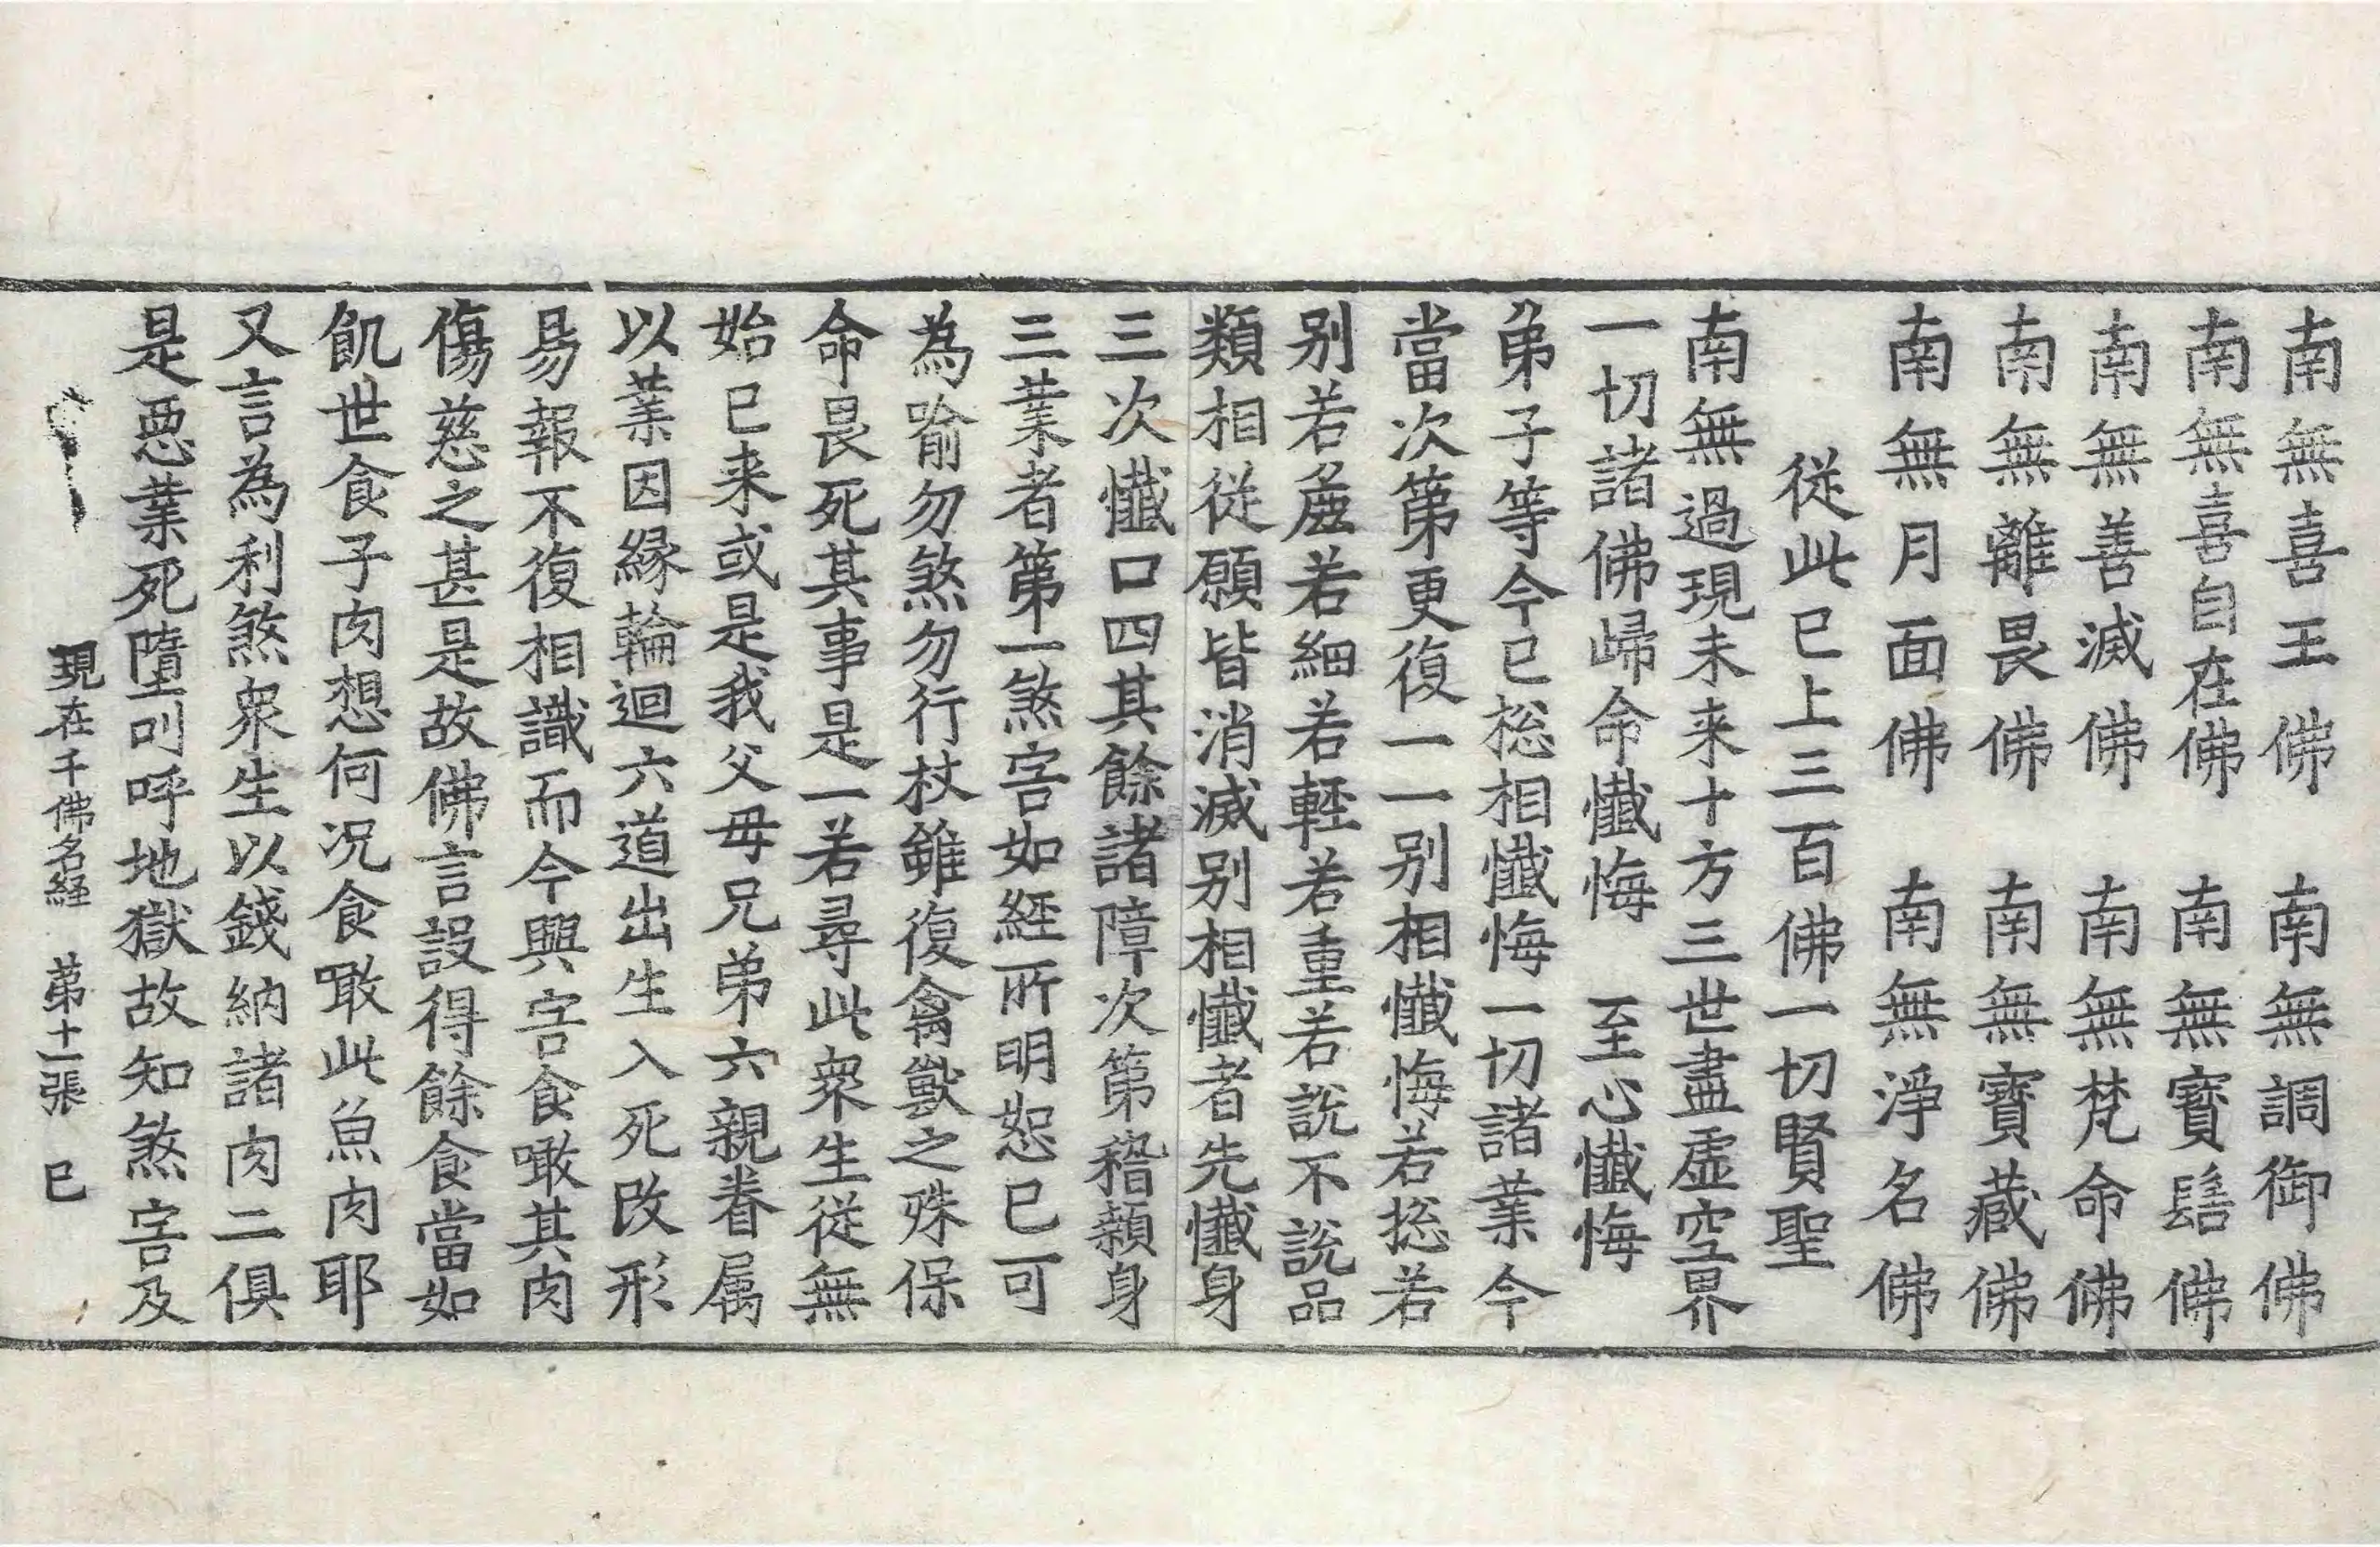 南無喜王佛　南無調御佛
南無喜自在佛　南無寶髻佛
南無善滅佛　南無梵命佛
南無離畏佛　南無寶藏佛
南無月面佛　南無淨名佛
從此已上三百佛一切賢聖
南無過現未来十方三世盡虛空界
一切諸佛歸命懺悔　至心懺悔
弟子等今已捴相懺悔一切諸業今
當次第更復一一别相懺悔若捴若
别若麁若細若輕若重若說不說品
類相從願皆消滅别相懺者先懺身
三次懺口四其餘諸障次第稽顙身
三業者第一煞害如經所明恕已可
為喻勿煞勿行杖雖復禽獸之殊保
命畏死其事是一若尋此衆生從無
始已来或是我父母兄弟六親眷属
以業因緣輪迴六道出生入死改形
易報不復相識而今興害食噉其肉
傷慈之甚是故佛言設得餘食當如
飢世食子肉想何况食噉此魚肉耶
又言為利煞衆生以錢納諸肉二俱
是惡業死墮叫呼地獄故知煞害及
現在千佛名経　第十一張　巳